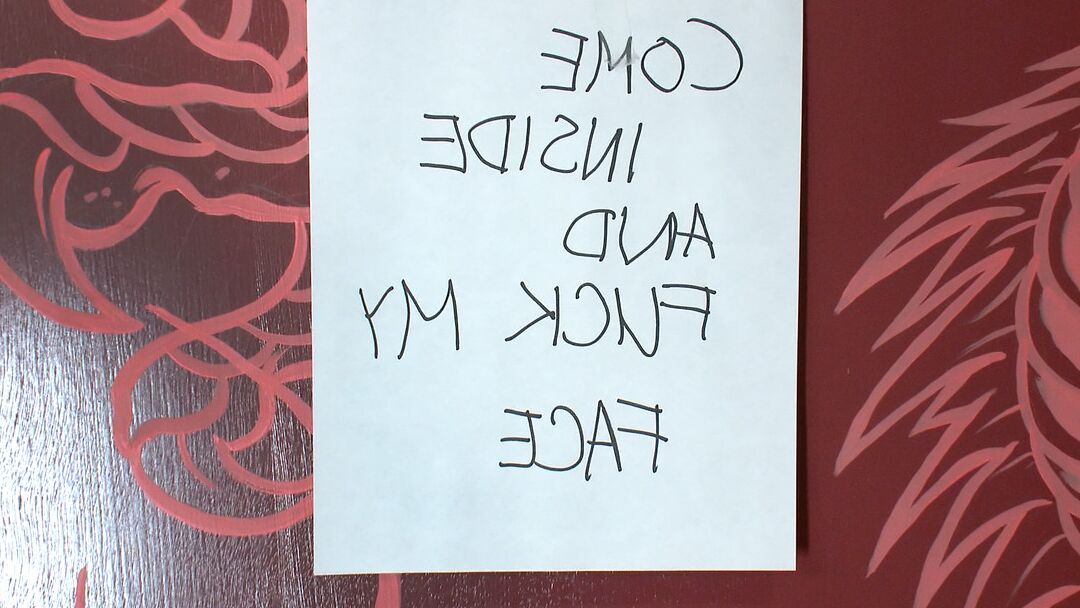 COME
INSIDE
AND
FUCK MY
FACE